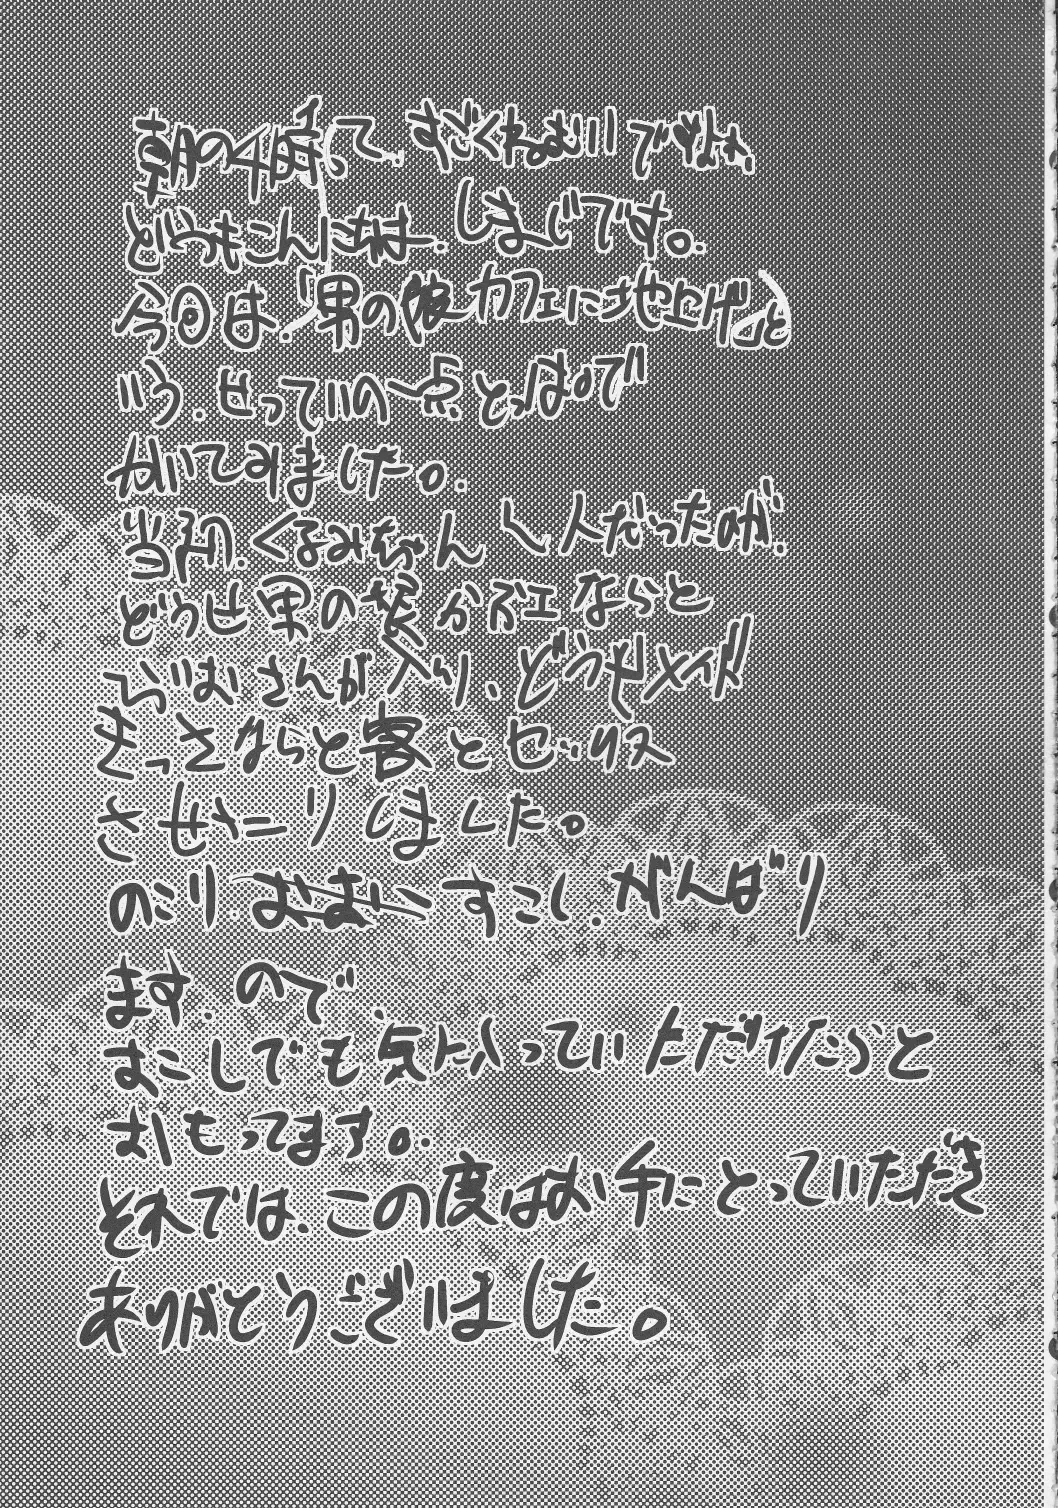 朝の4時って、すごくねむいですよね、
どうもこんにちは、しまじです。
今回は、「男の娘カフェに地上げ」と
いう、せっていの一点とっぱで
かいてみました。
当初、くるみちゃん1人だったのが、
どうせ男の娘かふェならと
おさんが入り、どうせメイド
きっさならと客とセックス
させたりしました。
のこり、すこし、がんばり
ます、ので、
すこしでも気に入っていただけたらと
おもってます。
それでは、この度はお手にとっていただき
ありがとうございました。